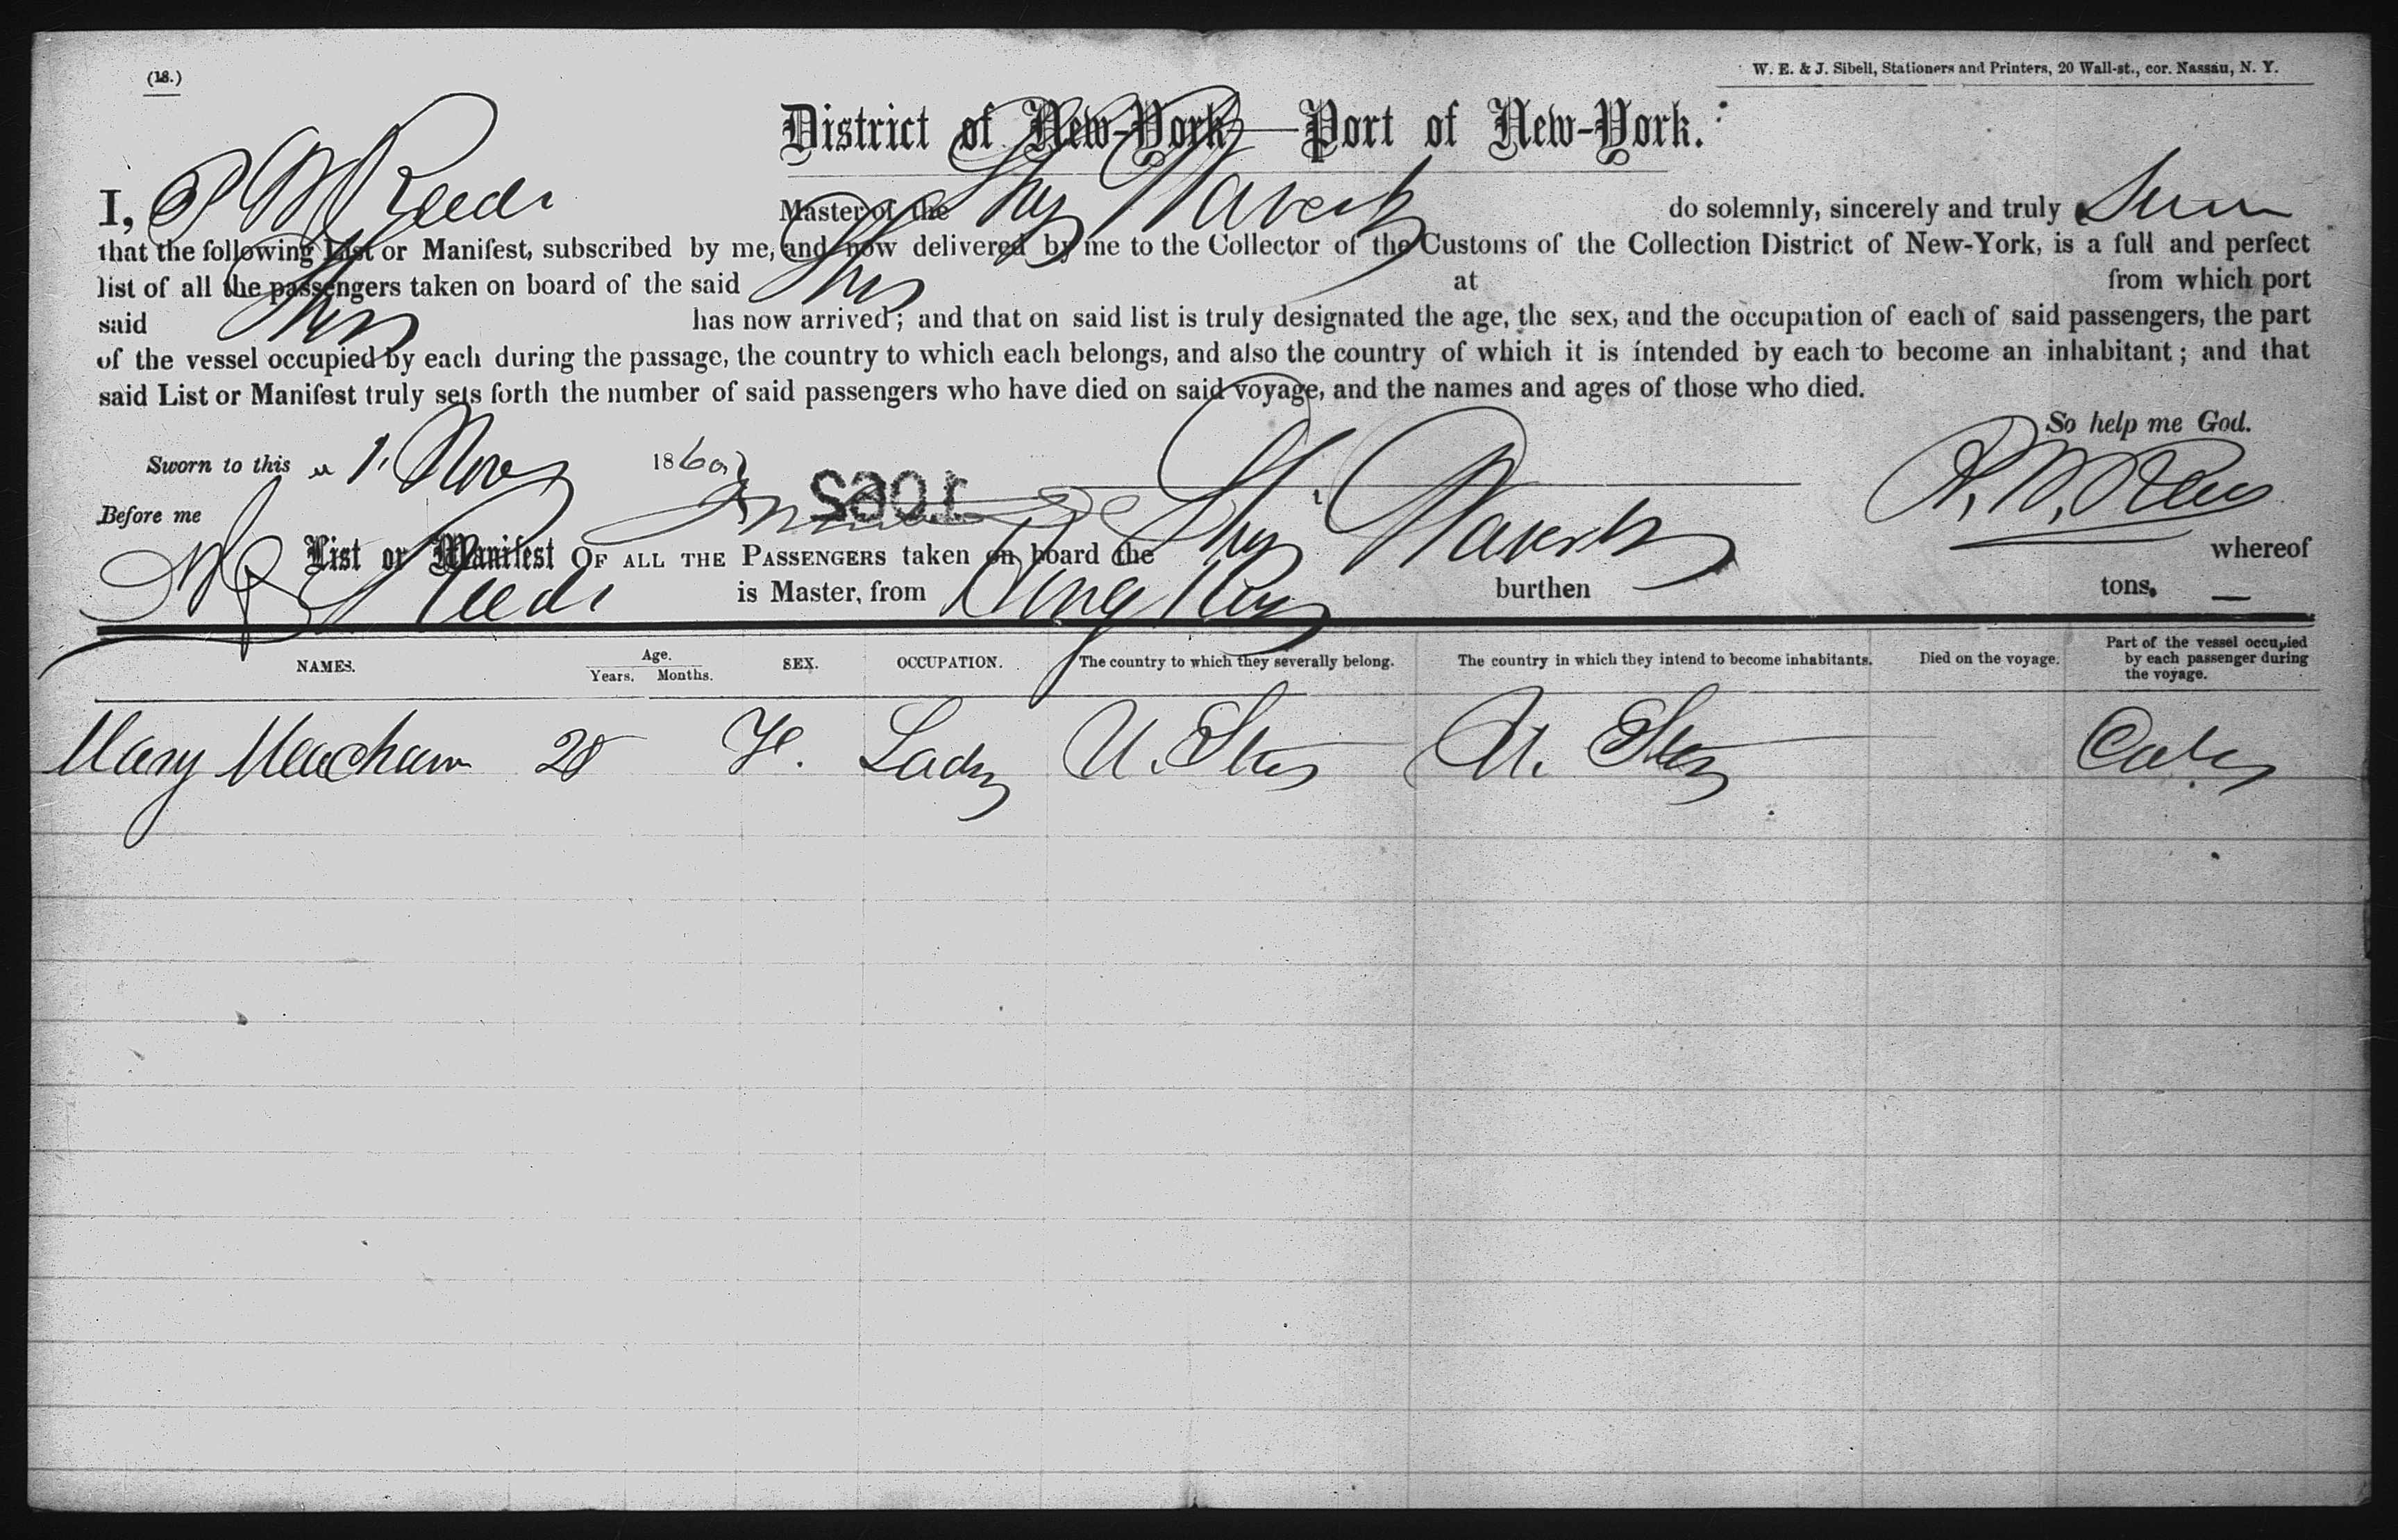 (18.)
W. E. & J. Sibell, Stationers and Printers, 20 Wall-st., cor. Nassau, N. Y.
District of New-York—Port of New-York.
I, Reed Master of the Ship do solemnly, sincerely and truly
that the following List or Manifest, subscribed by me, and now delivered by me to the Collector of the Customs of the Collection District of New-York, is a full and perfect
list of all the passengers taken on board of the said Ship at from which port
said Ship has now arrived; and that on said list is truly designated the age, the sex, and the occupation of each of said passengers, the part
of the vessel occupied by each during the passage, the country to which each belongs, and also the country of which it is intended by each to become an inhabitant; and that
said List or Manifest truly sets forth the number of said passengers who have died on said voyage, and the names and ages of those who died.
So help me God.
Sworn to this 1. Nov 186
Before me
List or Manifest OF ALL THE PASSENGERS taken on board the Ship whereof
Reed is Master, from burthen tons.
NAMES. Age. Years. Months. SEX. OCCUPATION. The country to which they severally belong. The country in which they intend to become inhabitants. Died on the voyage. Part of the vessel occupied by each passenger during the voyage.
Mary Meacham 28 Fe. Lady U. Sts U. Sts